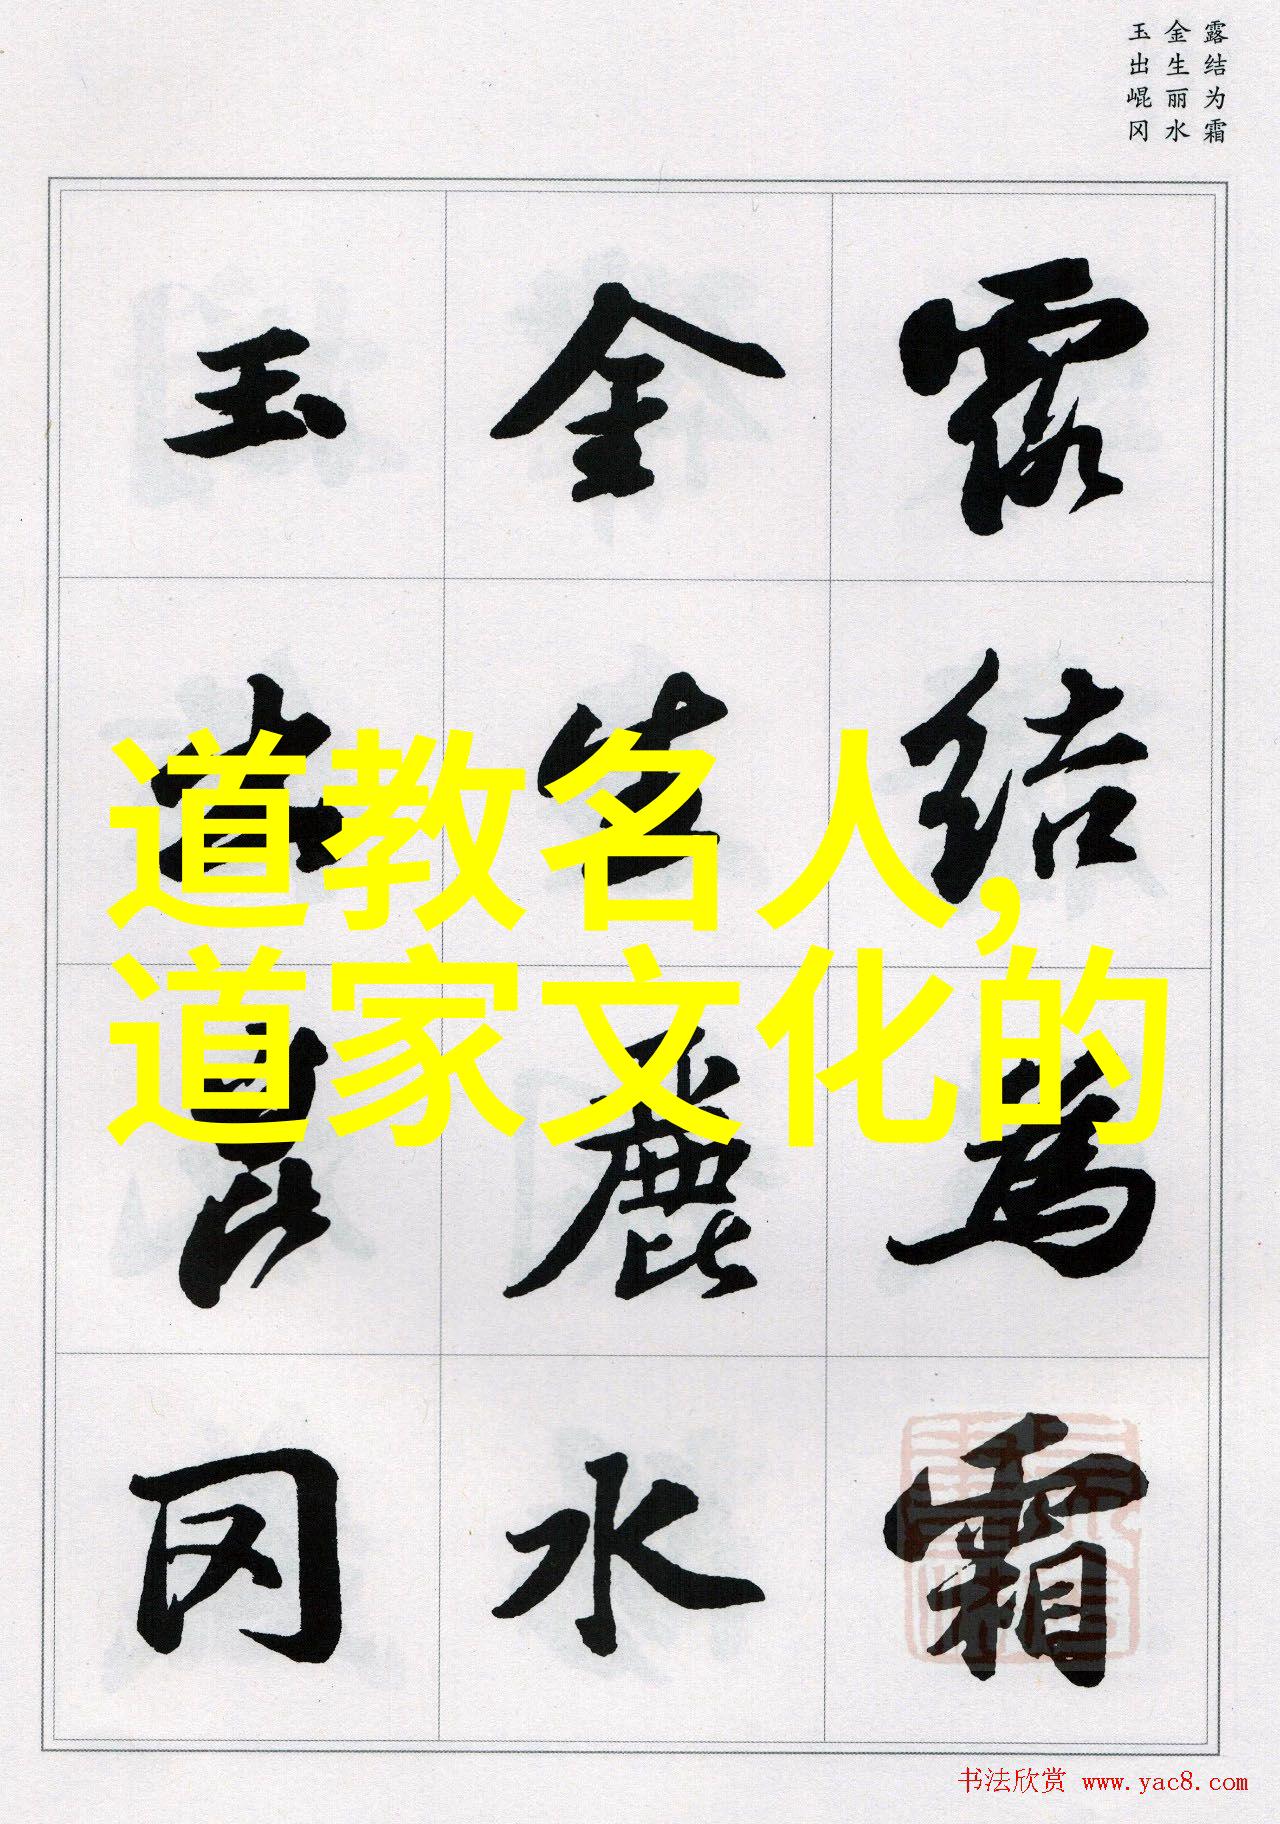 露结为霜
金生丽水
玉出崐冈
露结為霜
金生麗水
玉出崑冈
道教名人,
道家文化的
书法欣赏 www.yac8.com